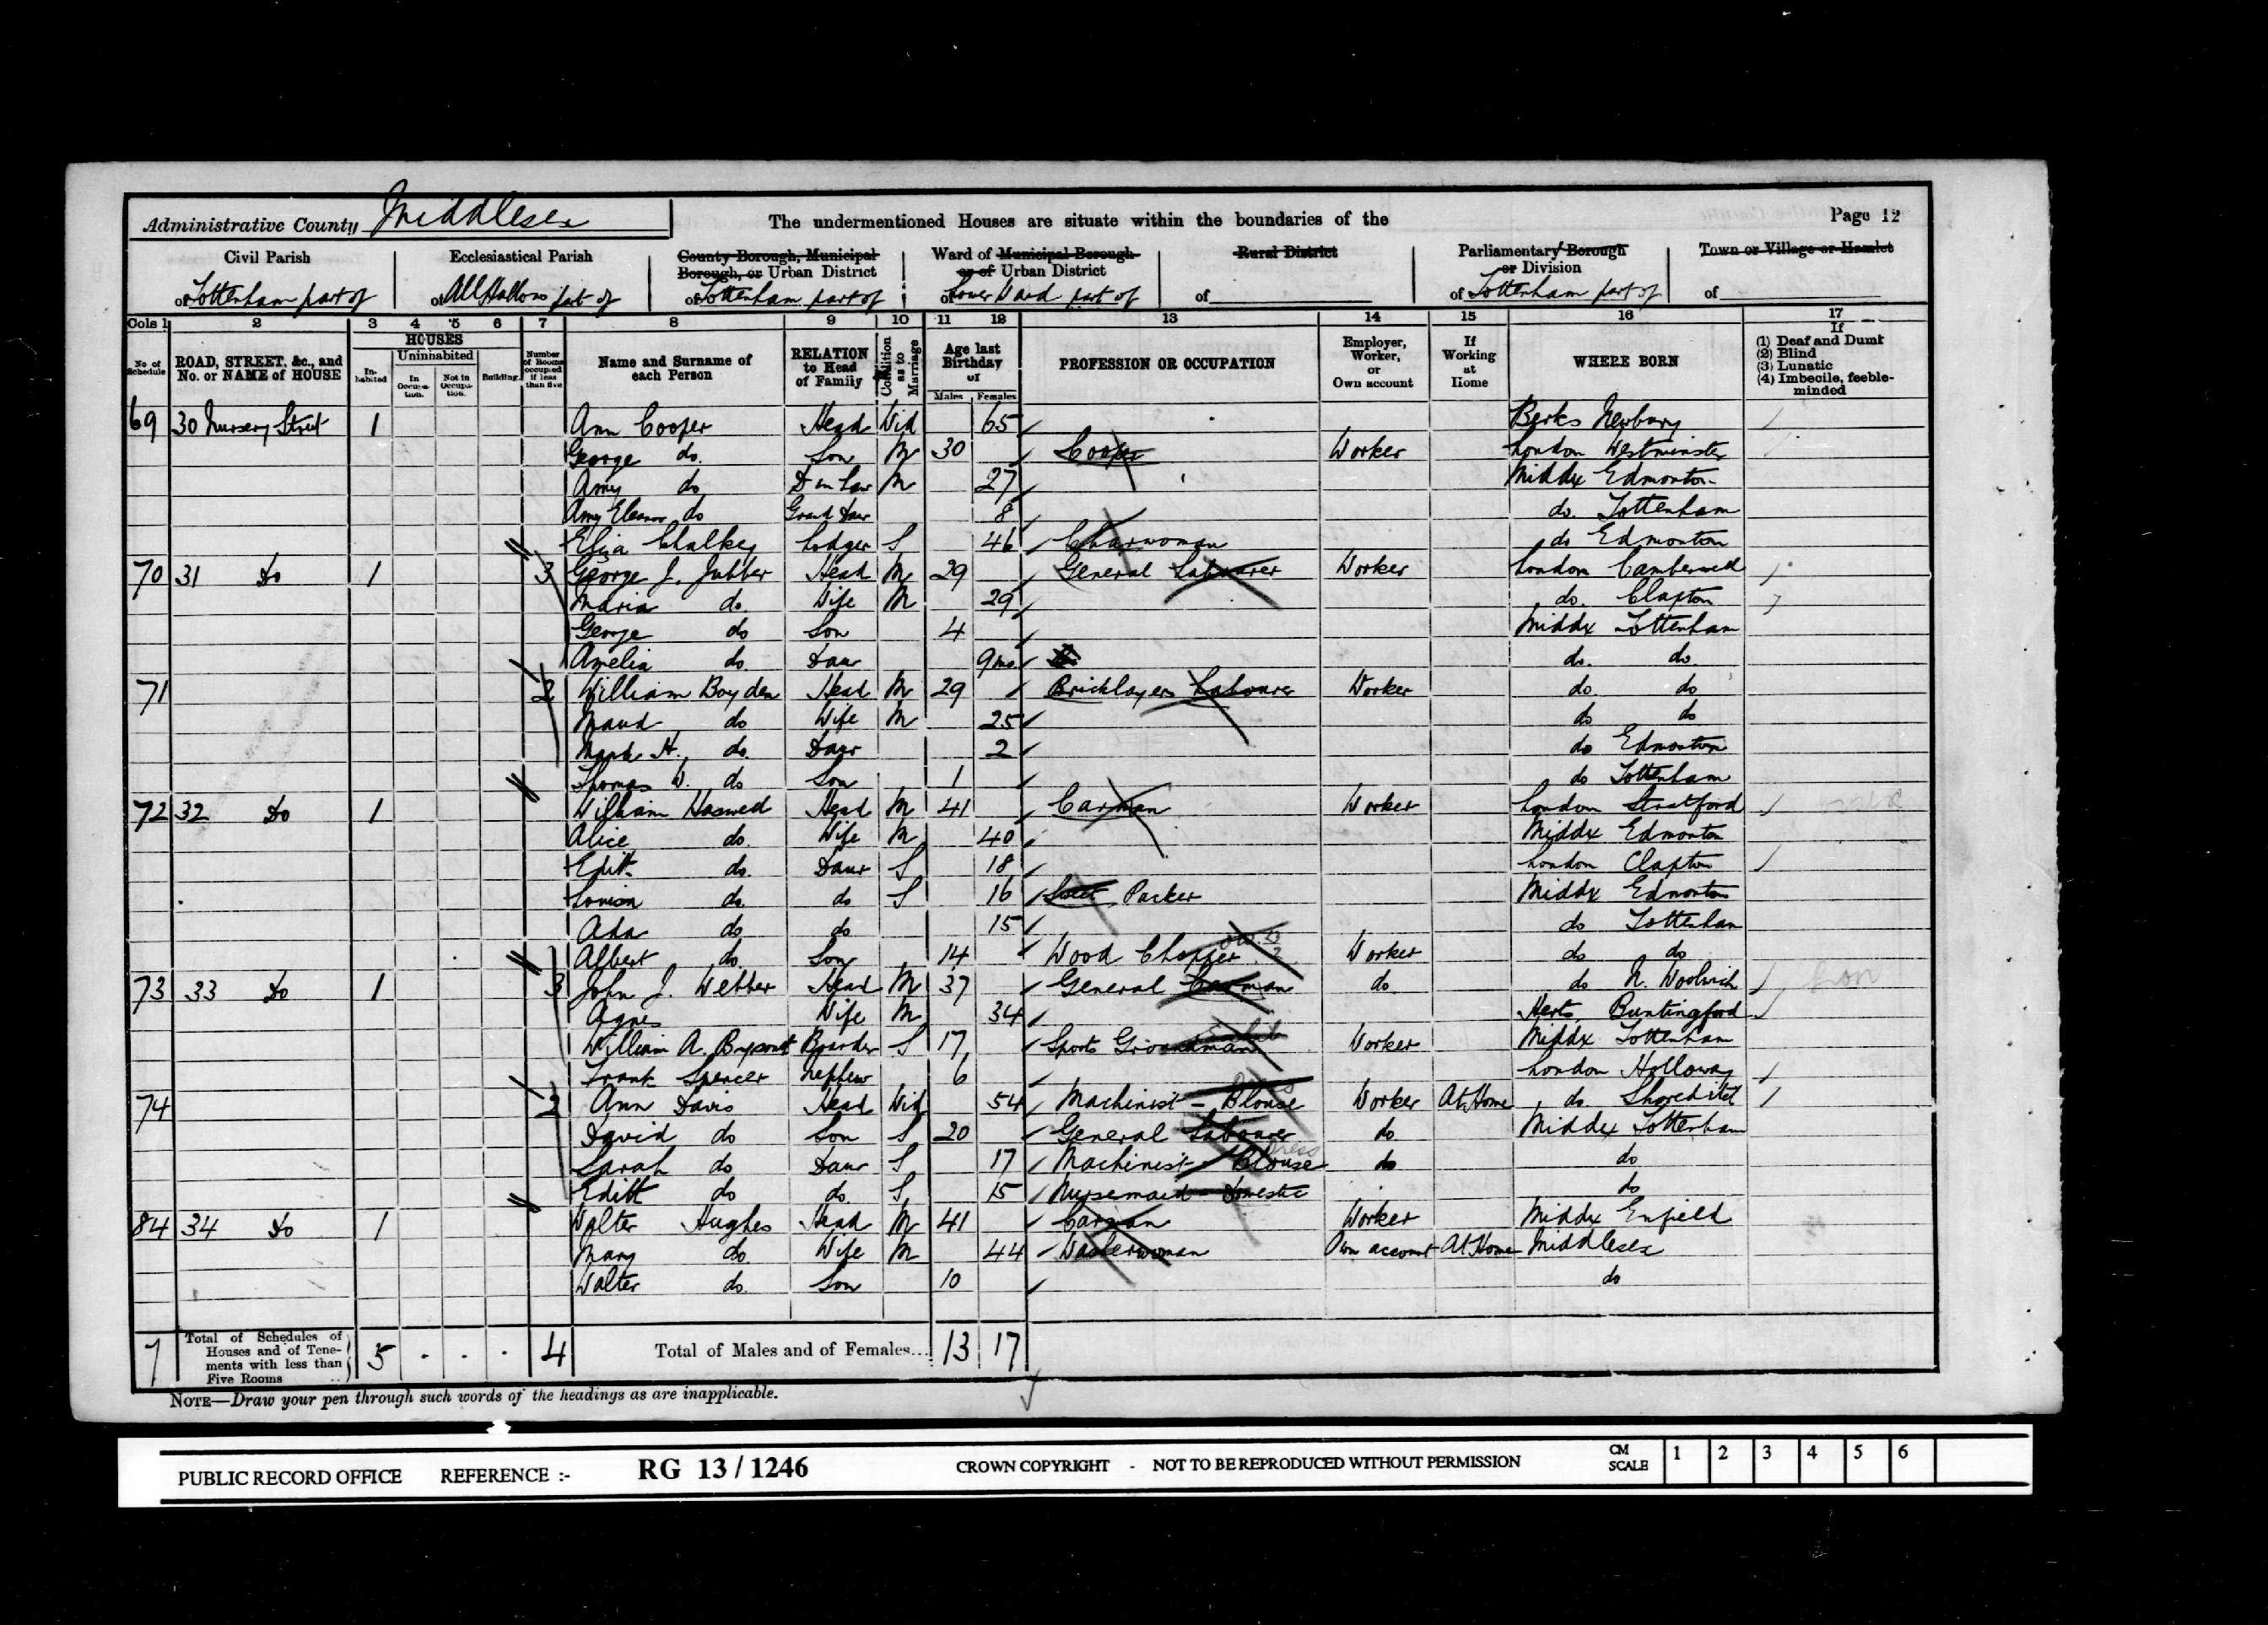 Administrative County Middlesex
The undermentioned Houses are situate within the boundaries of the
Page 12
Civil Parish
of Tottenham part of
Ecclesiastical Parish
of All Hallows part of
County Borough, Municipal Borough, or Urban District
of Tottenham part of
Ward of Municipal Borough or of Urban District
of Lower Ward part of
Rural District
of
Parliamentary Borough or Division
of Tottenham part of
Town or Village or Hamlet
of
Cols 1 2 3 4 5 6 7 8 9 10 11 12 13 14 15 16 17
No of Schedule
ROAD, STREET, &c., and No. or NAME of HOUSE
HOUSES
Inhabited
Uninhabited
In Occupation.
Not in Occupation.
Building.
Number of Rooms occupied if less than five
Name and Surname of each Person
RELATION to Head of Family
Condition as to Marriage
Age last Birthday of
Males Females
PROFESSION OR OCCUPATION
Employer, Worker, or Own account
If Working at Home
WHERE BORN
If
(1) Deaf and Dumb
(2) Blind
(3) Lunatic
(4) Imbecile, feeble-minded
69 30 Nursery Street 1 Ann Cooper Head Wid 65 Berks Newbury
George do. Son M 30 Cooper Worker London Westminster
Amy do D in Law M 27 Middx Edmonton
Amy Eleanor do Grand Daur 8 do. Tottenham
Eliza Chalkey Lodger S 46 Charwoman do Edmonton
70 31 Do 1 3 George J. Jubber Head M 29 General Labourer Worker London Camberwell
Maria do. Wife M 29 do. Clapton
George do Son 4 Middx Tottenham
Amelia do Daur 9mo. do. do.
71 2 William Boyden Head M 29 Bricklayers Labourer Worker do. do
Maud do Wife M 25 do do
H. do. Daur 2 do Edmonton
Thomas W. do Son 1 do Tottenham
72 32 Do 1 William Haswell Head M 41 Carman Worker London Stratford
Alice do. Wife M 40 Middx Edmonton
Edith do. Daur S 18 London Clapton
Louisa do. do S 16 Sweet Packer Middx Edmonton
Ada do do 15 do Tottenham
Albert do. Son 14 Wood Chopper Worker do do
73 33 Do 1 3 John J. Webber Head M 37 General Carman do. do N. Woolwich
Agnes Wife M 34 Herts Buntingford
William A. Boarder S 17 Sports Groundman Worker Middx Tottenham
Frank Spencer Nephew 6 London Holloway
74 2 Ann Davis Head Wid 54 Machinist - Blouse Worker At Home do. Shoreditch
David do Son S 20 General Labourer do Middx Tottenham
Sarah do Daur S 17 Machinist - Blouse do do
Edith do do. S 15 Nursemaid - Domestic do
84 34 Do 1 Walter Hughes Head M 41 Carman Worker Middx Enfield
Mary do. Wife M 44 Washerwoman Own account At Home Middlesex
Walter do. Son 10 do
7 Total of Schedules of Houses and of Tenements with less than Five Rooms .. 5 . . . 4 Total of Males and of Females... 13 17
NOTE—Draw your pen through such words of the headings as are inapplicable.
PUBLIC RECORD OFFICE REFERENCE :- RG 13 / 1246 CROWN COPYRIGHT - NOT TO BE REPRODUCED WITHOUT PERMISSION CM SCALE 1 2 3 4 5 6